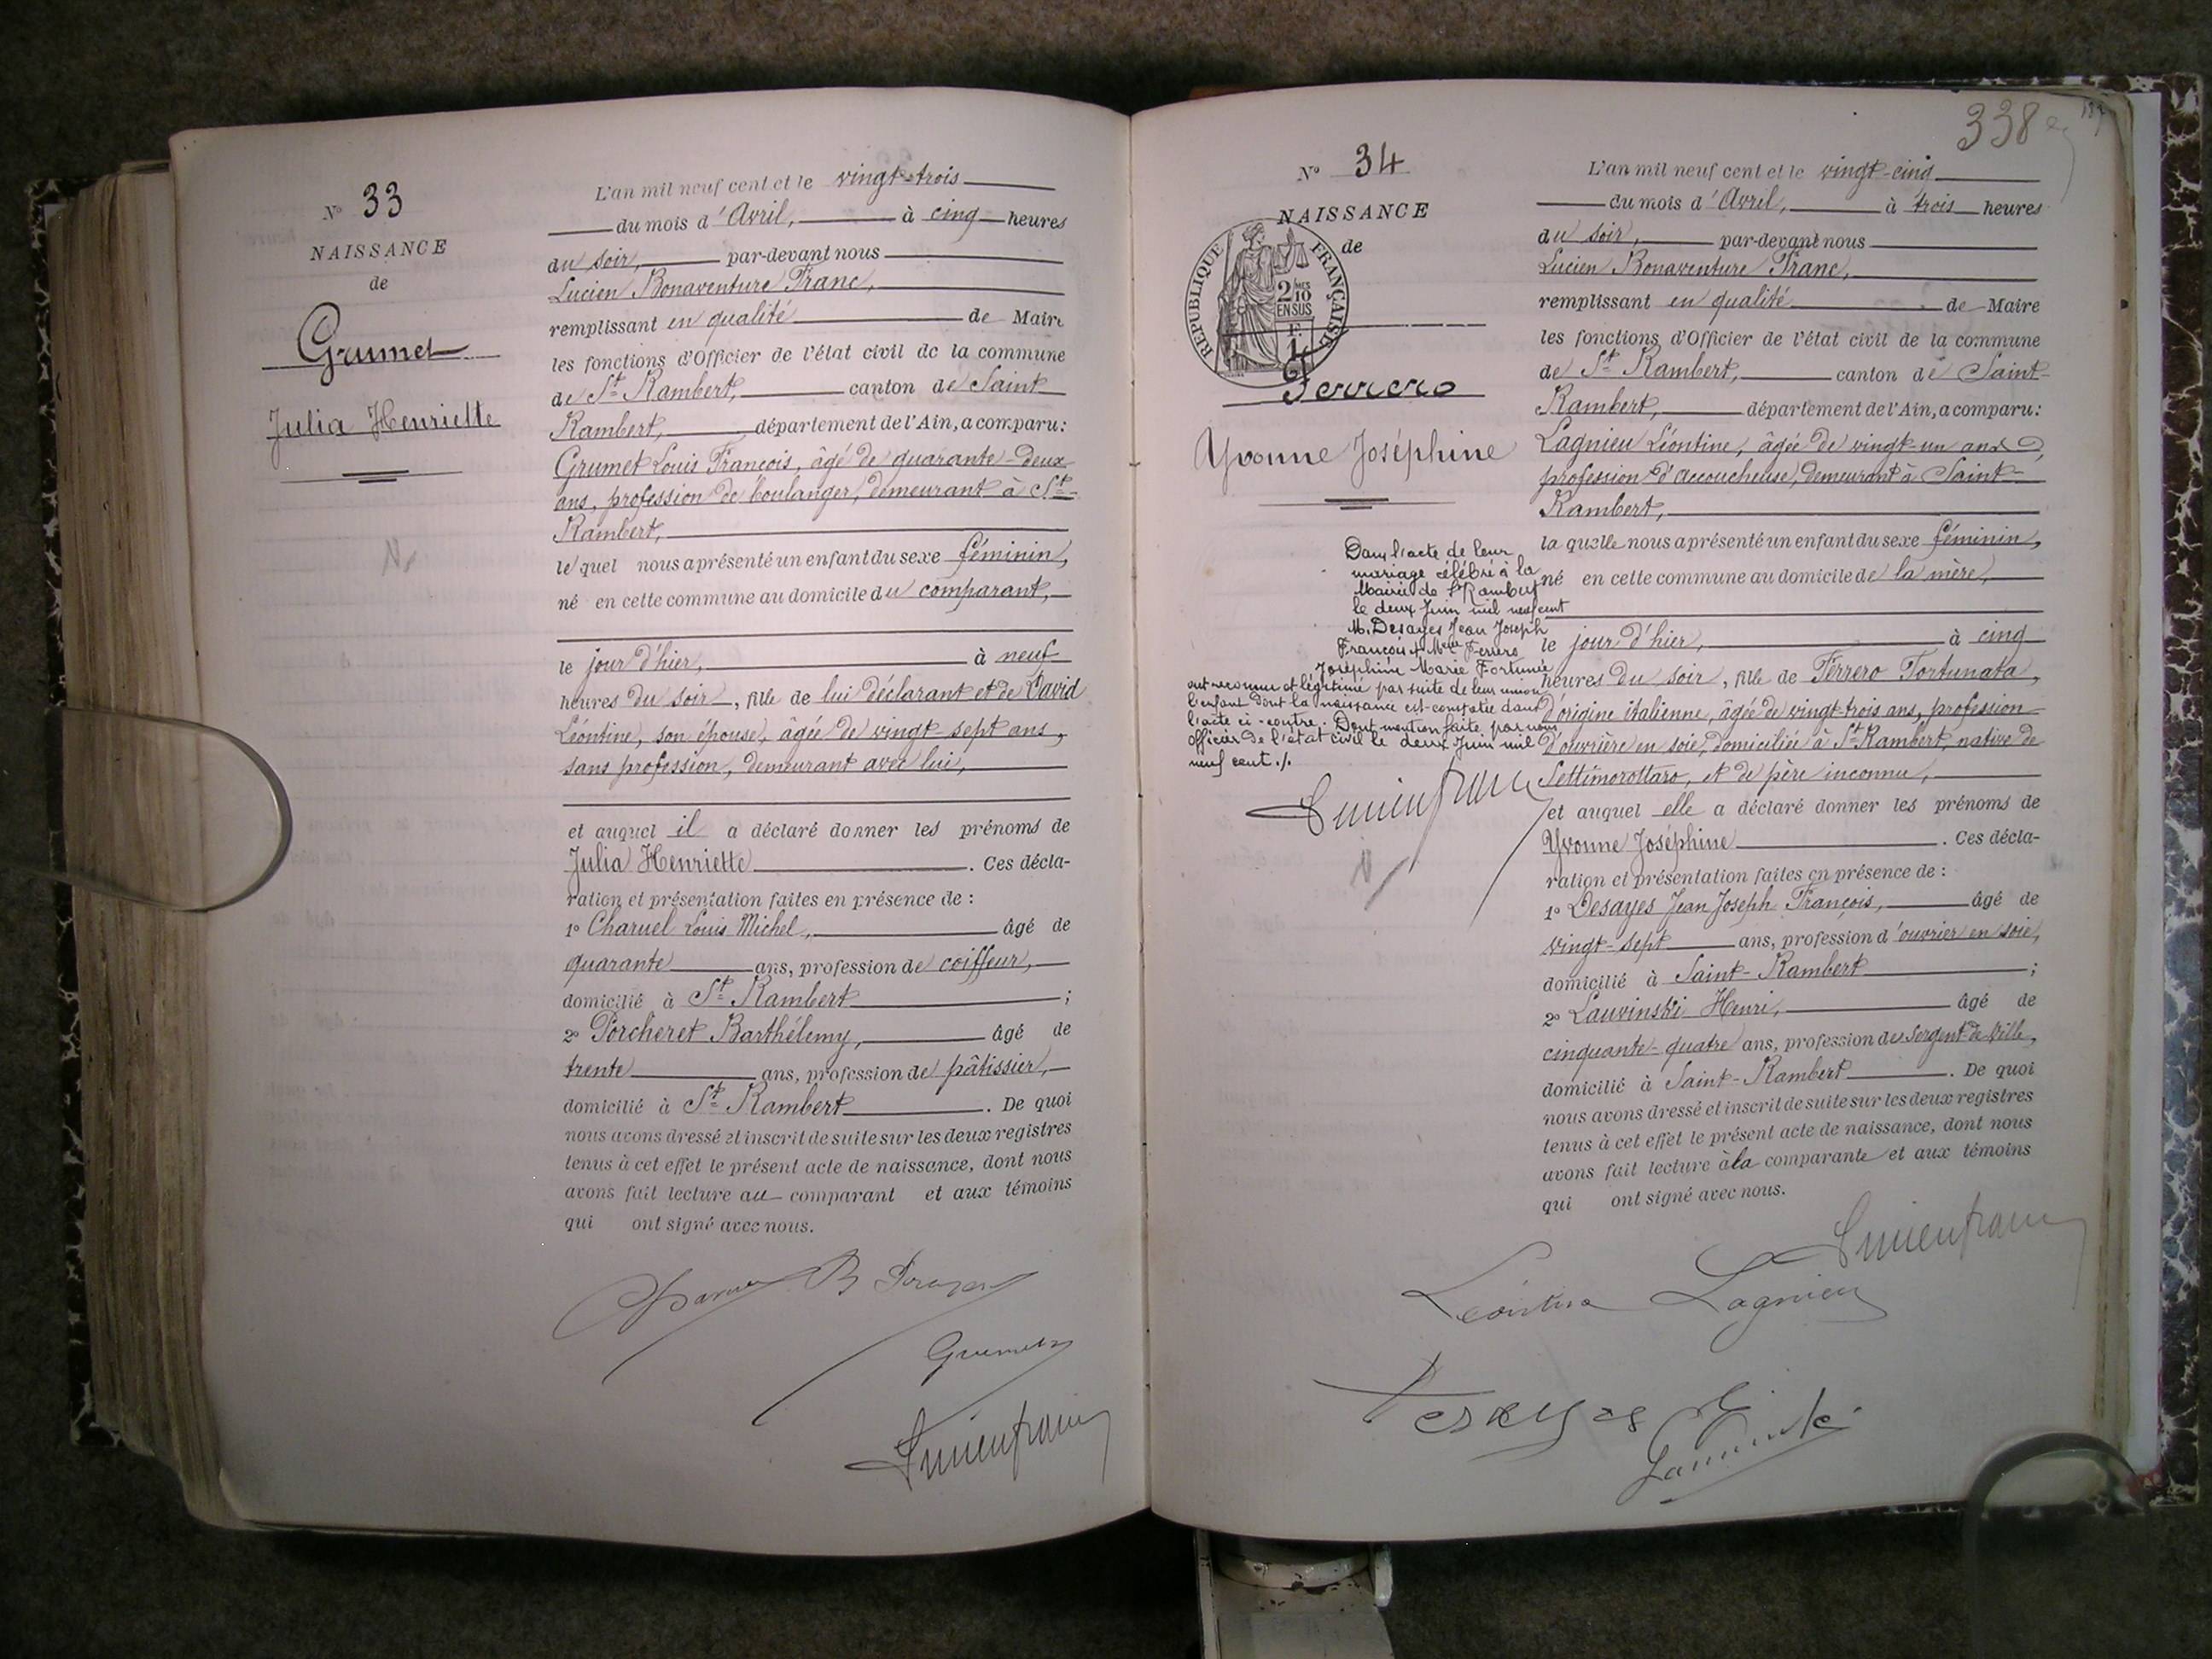 N° 33
NAISSANCE
de
Grumet
Julia Henriette
L'an mil neuf cent et le vingt-trois
du mois d'Avril, à cinq heures
du soir, par-devant nous
Lucien Bonaventure Franc,
remplissant en qualité de Maire
les fonctions d'Officier de l'état civil de la commune
de St Rambert, canton de Saint
Rambert, département de l'Ain, a comparu:
Grumet Louis François, âgé de quarante-deux
ans, profession de boulanger, demeurant à St-
Rambert,
lequel nous a présenté un enfant du sexe féminin,
né en cette commune au domicile du comparant,
le jour d'hier, à neuf
heures du soir, fille de lui déclarant et de David
Léontine, son épouse, âgée de vingt sept ans,
sans profession, demeurant avec lui,
et auquel il a déclaré donner les prénoms de
Julia Henriette. Ces décla-
ration et présentation faites en présence de :
1° Charvel Louis Michel, âgé de
quarante ans, profession de coiffeur,
domicilié à St Rambert ;
2° Porcheret Barthélemy, âgé de
trente ans, profession de pâtissier,
domicilié à St Rambert. De quoi
nous avons dressé et inscrit de suite sur les deux registres
tenus à cet effet le présent acte de naissance, dont nous
avons fait lecture au comparant et aux témoins
qui ont signé avec nous.
Grumet
Lucien Franc
338
N° 34
NAISSANCE
de
RÉPUBLIQUE FRANÇAISE
2/10 EN SUS
Ferrero
Yvonne Joséphine
Dans l'acte de leur
mariage célébré à la
Mairie de St Rambert
le deux Juin mil neuf cent
M. Desayes Jean Joseph
François & Melle Ferrero
Joséphine Marie Fortunée
ont reconnu et légitimé par suite de leur union
l'enfant dont la naissance est constatée dans
l'acte ci-contre. Dont mention faite par nous
Officier de l'état civil le deux Juin mil
neuf cent./.
Lucien Franc
L'an mil neuf cent et le vingt-cinq
du mois d'Avril, à trois heures
du soir, par-devant nous
Lucien Bonaventure Franc,
remplissant en qualité de Maire
les fonctions d'Officier de l'état civil de la commune
de St Rambert, canton de Saint-
Rambert, département de l'Ain, a comparu:
Lagnieu Léontine, âgée de vingt-un ans,
profession d'accoucheuse, demeurant à Saint-
Rambert,
laquelle nous a présenté un enfant du sexe féminin,
né en cette commune au domicile de la mère,
le jour d'hier, à cinq
heures du soir, fille de Ferrero Fortunata,
d'origine italienne, âgée de vingt-trois ans, profession
d'ouvrière en soie, domiciliée à St Rambert, native de
Settimorottaro, et de père inconnu,
et auquel elle a déclaré donner les prénoms de
Yvonne Joséphine. Ces décla-
ration et présentation faites en présence de :
1° Desayes Jean Joseph François, âgé de
vingt-sept ans, profession d'ouvrier en soie,
domicilié à Saint-Rambert ;
2° Lauvinski Henri, âgé de
cinquante-quatre ans, profession de sergent de ville,
domicilié à Saint-Rambert. De quoi
nous avons dressé et inscrit de suite sur les deux registres
tenus à cet effet le présent acte de naissance, dont nous
avons fait lecture à la comparante et aux témoins
qui ont signé avec nous.
Lucien Franc
Léontine Lagnieu
Desayes